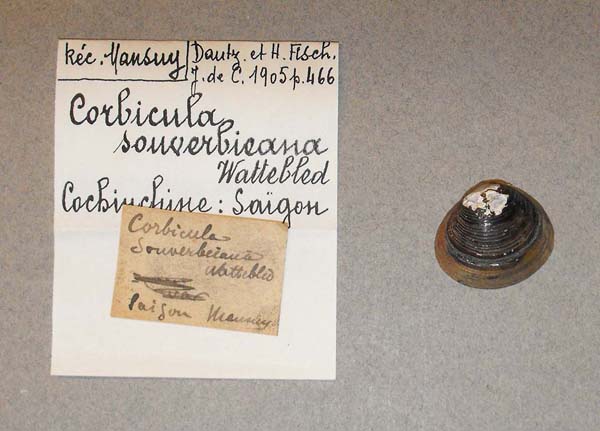 Réc. Mansuy
Dautz. et H. Fisch.
J. de C. 1905 p. 466
Corbicula
souverbieana
Wattebled
Cochinchine : Saïgon
Corbicula
Souverbieana
Wattebled
Saigon Mansuy